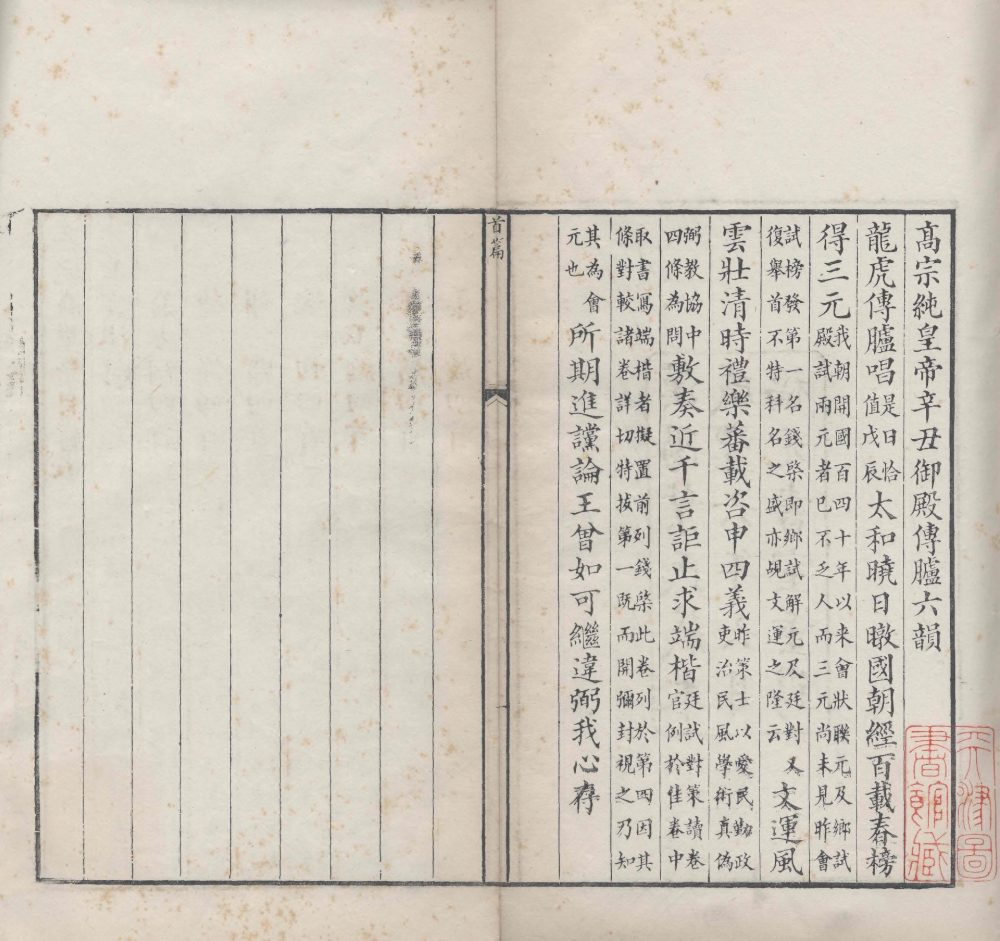 高宗純皇帝辛丑御殿傳臚六韻
龍虎傳臚唱是日恰值戊辰太和曉日暾國朝經百載春榜
得三元我朝開國百四十年以来會狀聫元及鄉試殿試兩元者已不乏人而三元尚未見昨會
試榜發第一名錢棨即鄉試解元及廷對又復舉首不特科名之盛亦覘文運之隆云文運風
雲壯清時禮樂蕃載咨申四義昨策士以愛民勤政吏治民風學術真偽
弼教協中四條為問敷奏近千言詎止求端楷廷試對策讀卷官例於佳卷中
取書寫端楷者擬置前列錢棨此卷列於第四因其條對較諸卷詳切特拔第一既而開彌封視之乃知
其為會元也所期進讜論王曾如可繼違弼我心存
首篇
天津圖
書館藏